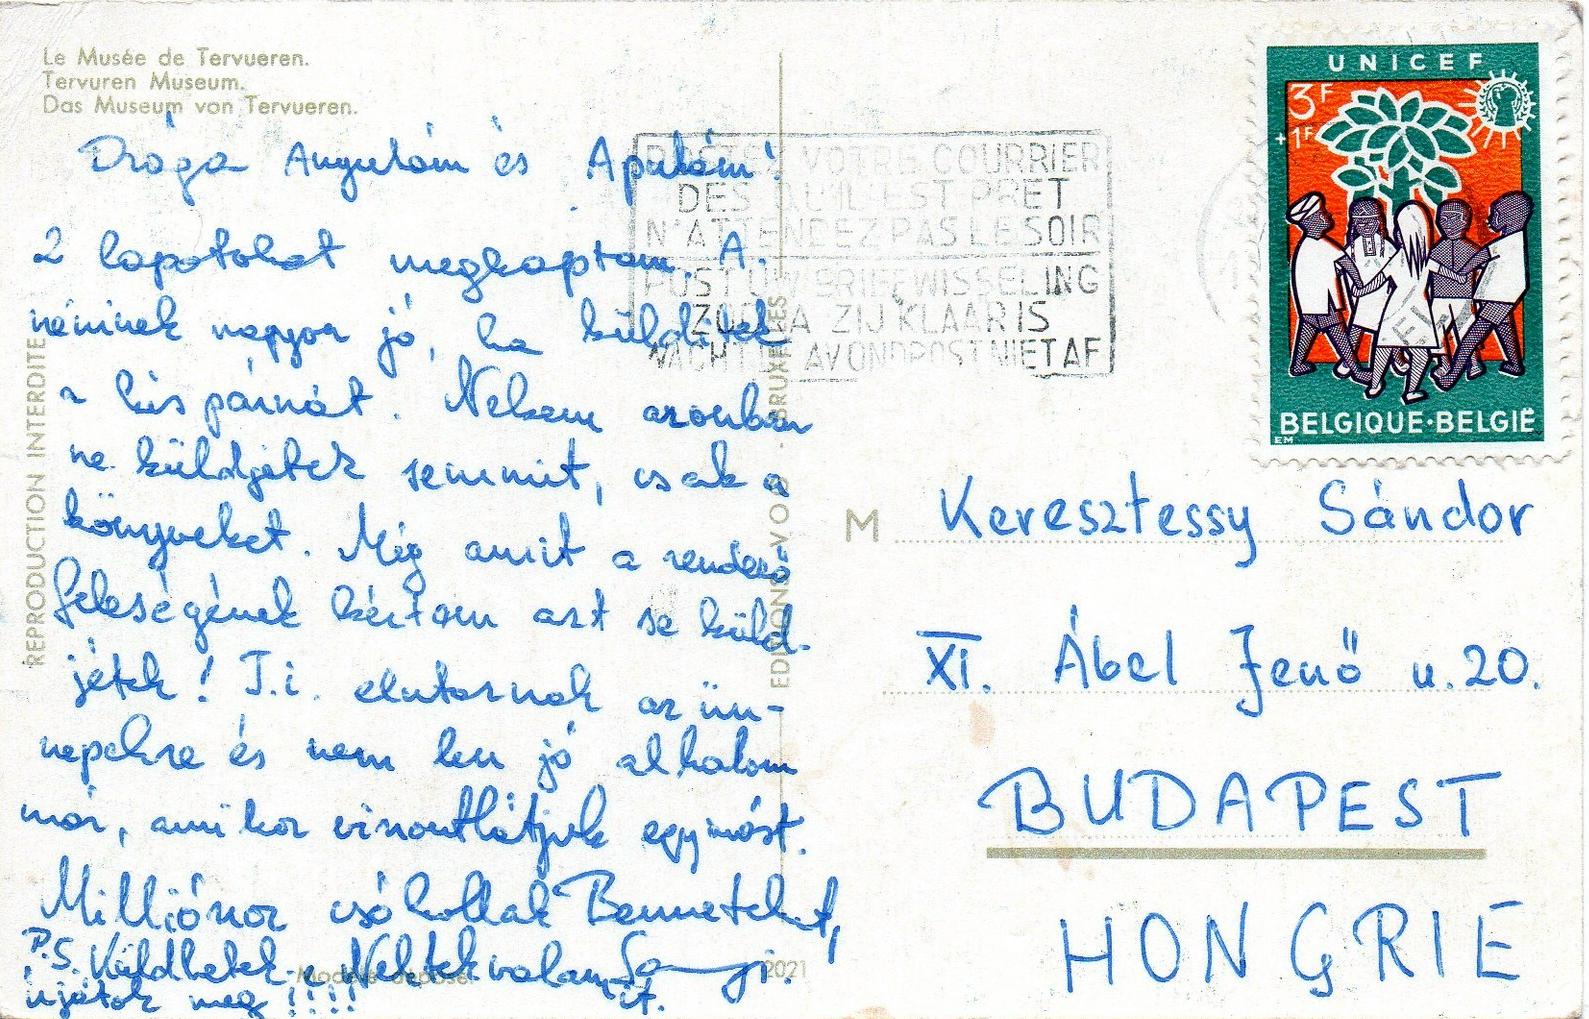 Le Musée de Tervueren.
Tervuren Museum.
Das Museum von Tervueren.
Drága Anyukám és Apukám!
2 lapotokat megkaptam. A.
néninek nagyon jó, ha külditek
a kis párnát. Nekem azonban
ne küldjetek semmit, csak a
könyveket. Még amit a rendező
feleségének kértem azt se küld-
jétek! T.i. elutaznak az ün-
nepekre és nem lesz jó alkalom
már, amikor viszontlátjuk egymást.
Milliószor csókollak Benneteket,
P.S. Küldhetek-e Nektek valamit.
írjátok meg!!!!
REPRODUCTION INTERDITE
EDITIONS BRUXELLES
Modèle déposé
2021
POSTEZ VOTRE COURRIER
DES QU'IL EST PRET
N'ATTENDEZ PAS LE SOIR
POST UW BRIEFWISSELING
ZODRA ZIJ KLAAR IS
WACHT DE AVONDPOST NIET AF
UNICEF
3F
+1F
BELGIQUE·BELGIË
EM
M Keresztessy Sándor
XI. Ábel Jenő u. 20.
BUDAPEST
HONGRIE